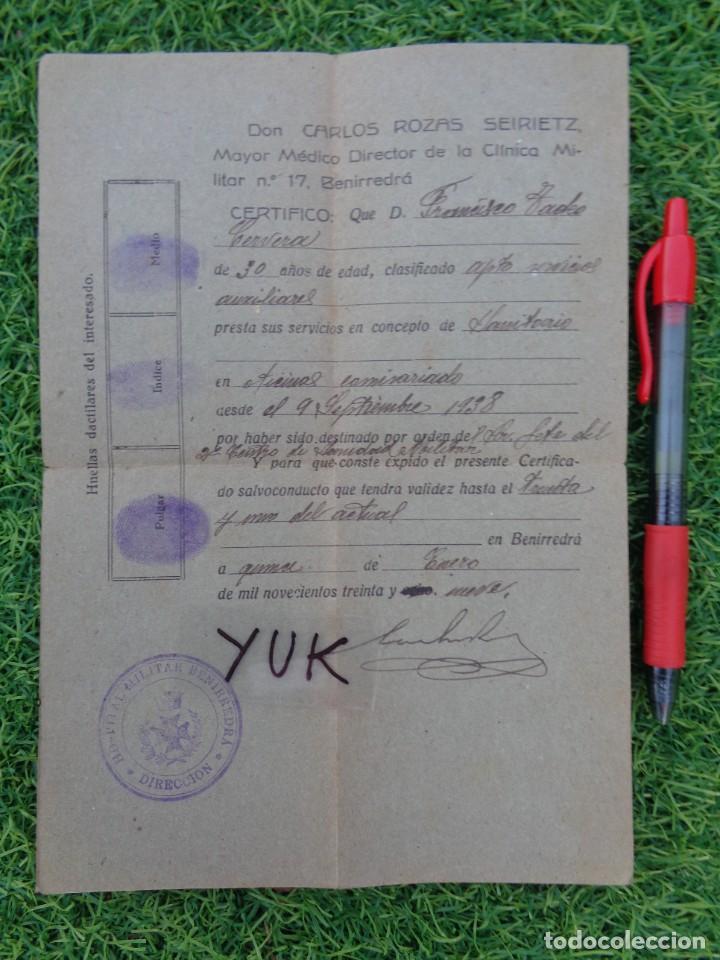 Don CARLOS ROZAS SEIRIETZ,
Mayor Médico Director de la Clínica Mi-
litar n.º 17, Benirredrá
CERTIFICO: Que D. Francisco
Cervera
de 30 años de edad, clasificado apto servicios
auxiliares
presta sus servicios en concepto de Sanitario
en oficinas comisariado
desde el 9 Septiembre 1938
por haber sido destinado por orden del Sr. Jefe del
2º Centro de Sanidad Militar
Y para que conste expido el presente Certifica-
do salvoconducto que tendra validez hasta el treinta
y uno del actual
en Benirredrá
a quince de Enero
de mil novecientos treinta y nueve.
YUK
Huellas dactilares del interesado.
Medio
Indice
Pulgar
HOSPITAL MILITAR BENIRREDRA
* DIRECCION *
todocoleccion.net